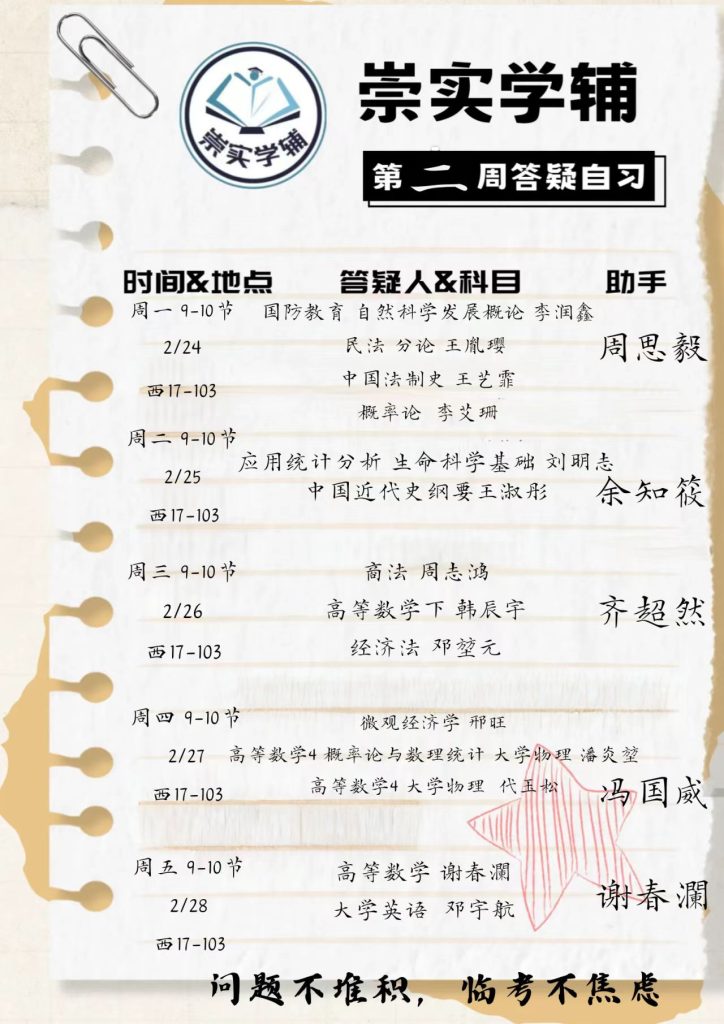 崇实学辅
崇实学辅
第二周答疑自习
时间&地点 答疑人&科目 助手
周一 9-10节 国防教育 自然科学发展概论 李润鑫
2/24 民法 分论 王胤璎 周思毅
西17-103 中国法制史 王艺霏
概率论 李艾珊
周二 9-10节
2/25 应用统计分析 生命科学基础 刘明志
中国近代史纲要王淑彤 余知筱
西17-103
周三 9-10节 商法 周志鸿
2/26 高等数学下 韩辰宇 齐超然
西17-103 经济法 邓堃元
周四 9-10节 微观经济学 邢旺
2/27 高等数学4 概率论与数理统计 大学物理 潘炎堃
西17-103 高等数学4 大学物理 代玉松 冯国威
周五 9-10节 高等数学 谢春澜
2/28 大学英语 邓宇航 谢春澜
西17-103
问题不堆积，临考不焦虑